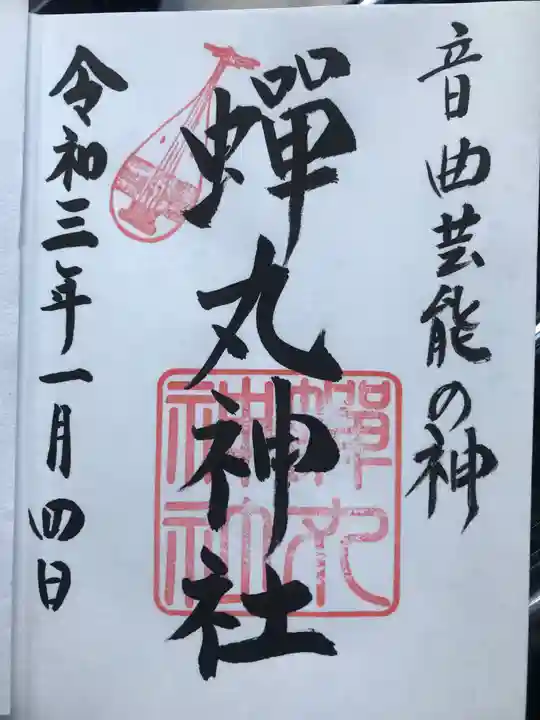 音曲芸能の神
蟬丸神社
令和三年一月四日
蟬丸
神社